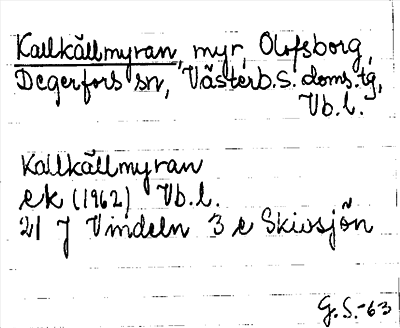 Kallkällmyran, myr, Olofsborg,
Degerfors sn, Västerb. S. doms. tg,
Vb. l.
Kallkällmyran
ek (1962) Vb. l.
21 J Vindeln 3 e Skivsjön
G. S. -63